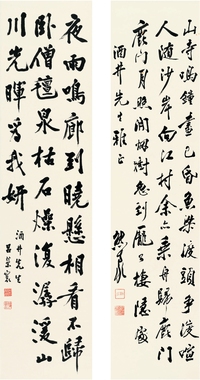 山寺鳴鐘晝已昏魚梁渡頭爭渡喧
人隨沙岸向江村余亦乘舟歸鹿門
鹿門月照開煙樹忽到龐公棲隱處
酒井先生雅正
夜雨鳴廊到曉懸相看不歸
臥僧氈泉枯石燥復潺湲山
川光暉爲我妍
酒井先生
呂榮寰